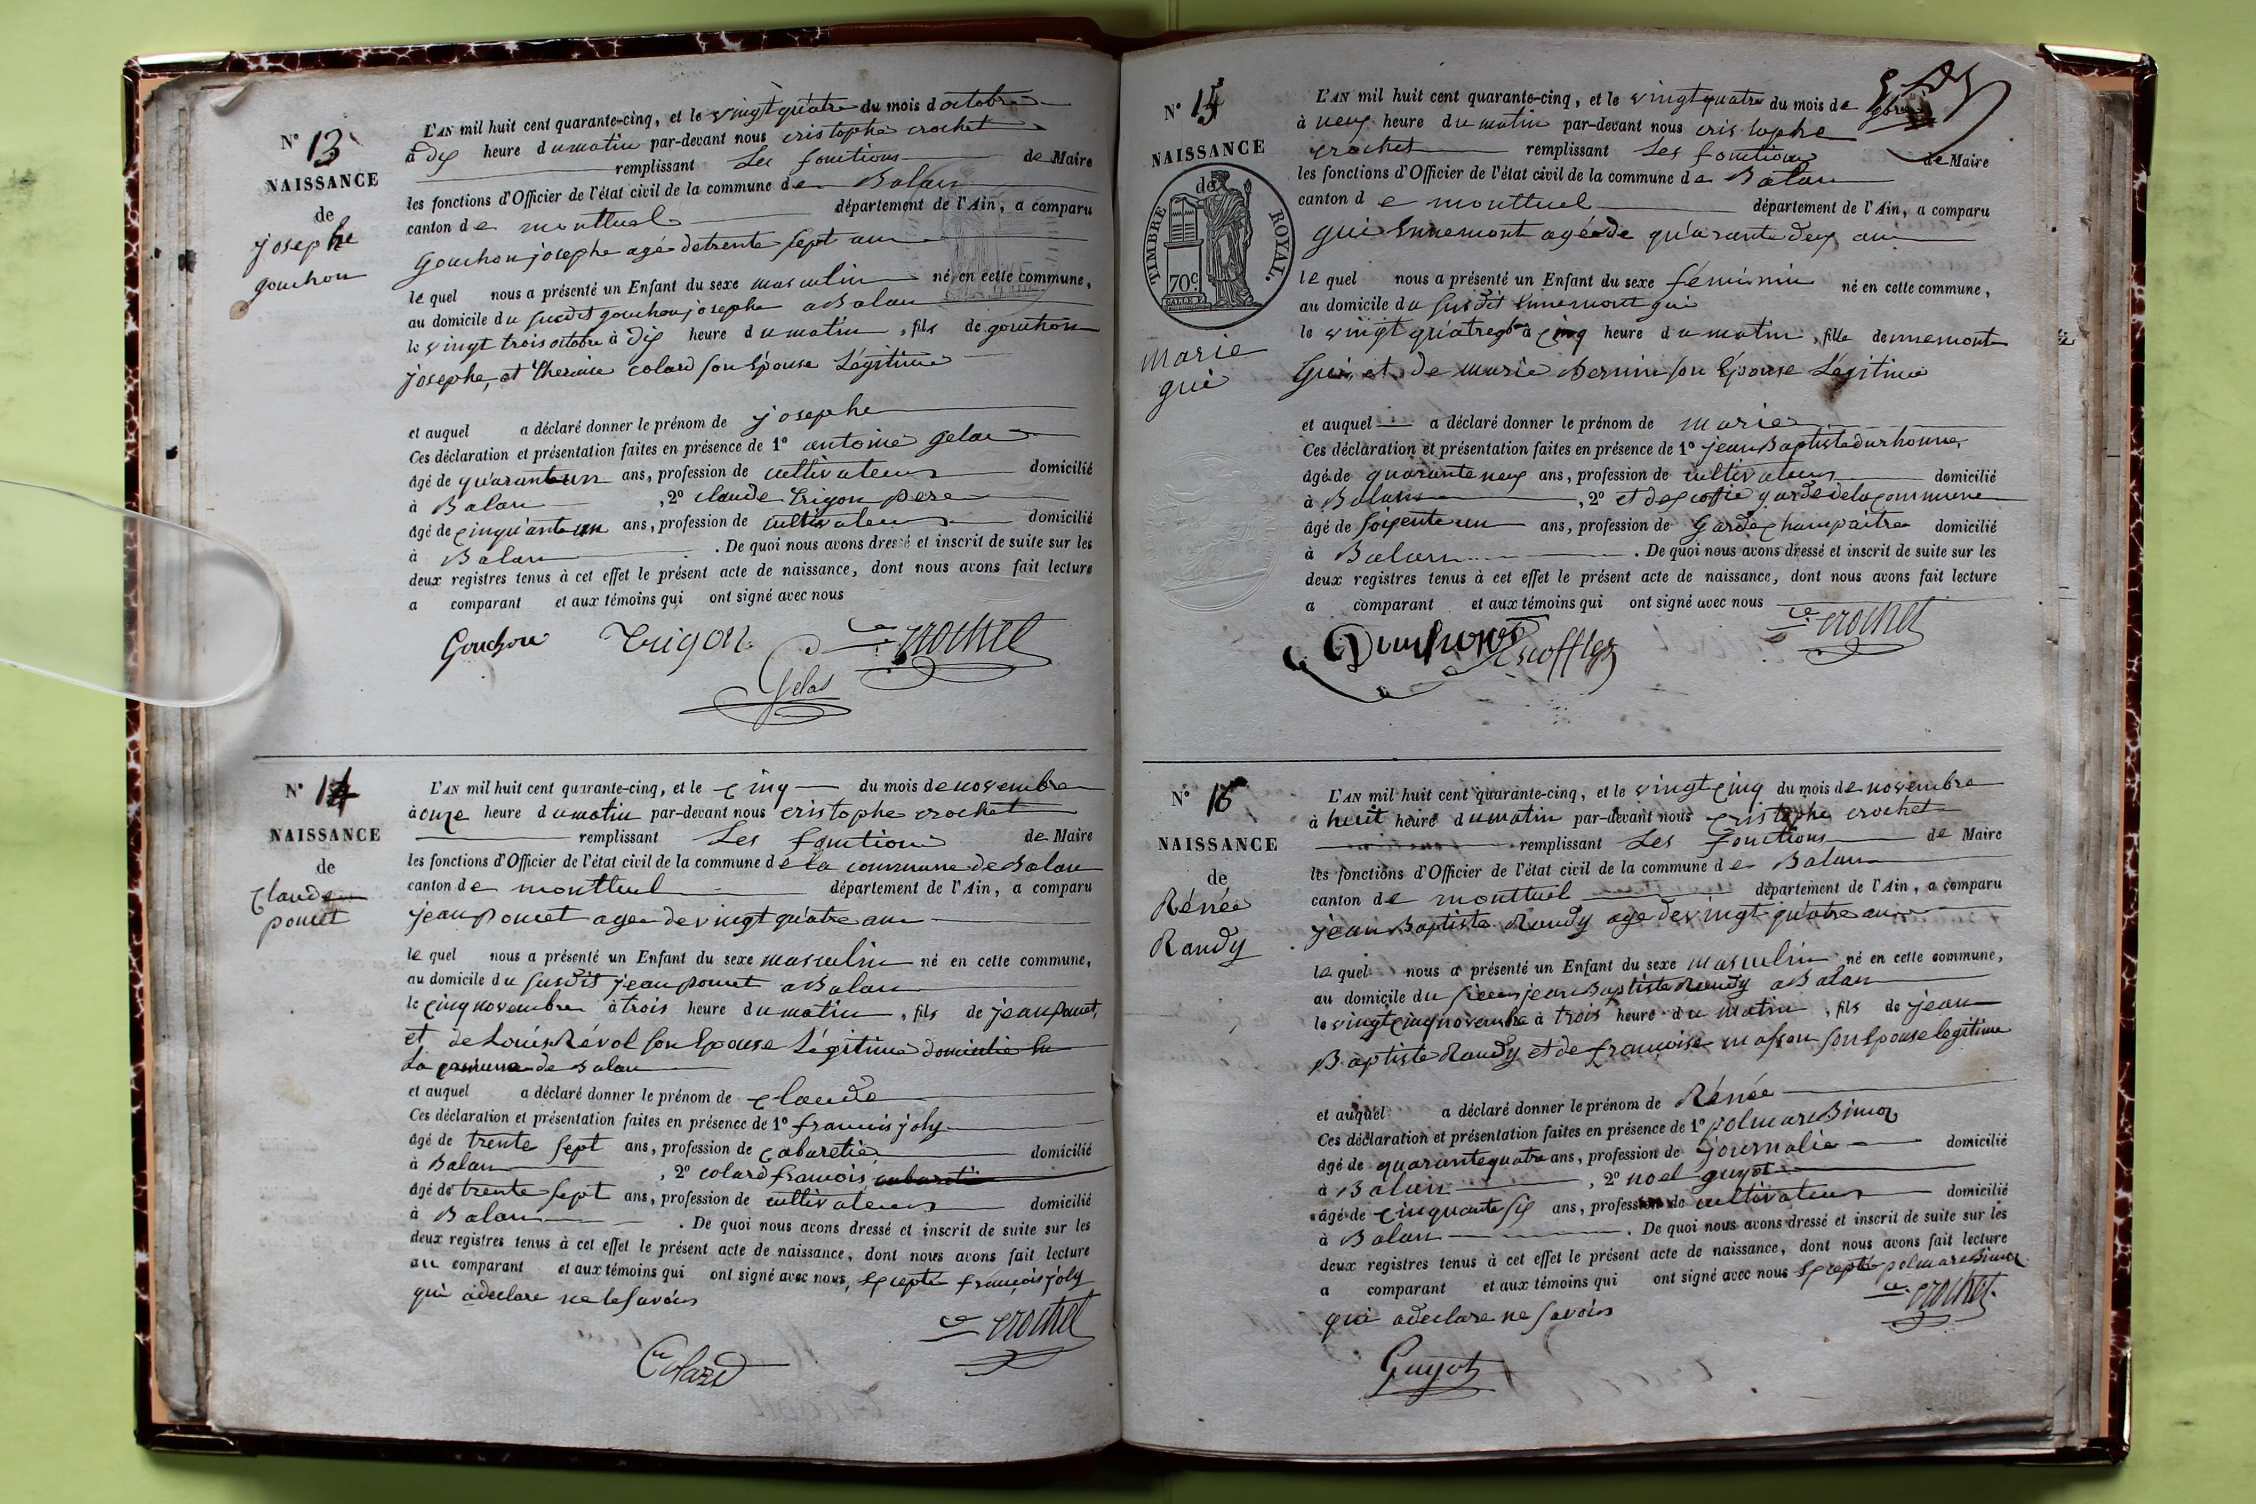 N° 13
NAISSANCE
de
josephe
gouchon
L'AN mil huit cent quarante-cinq, et le vingt quatre du mois d octobre
à dix heure du matin par-devant nous cristophe crochet
remplissant Les fonctions de Maire
les fonctions d'Officier de l'état civil de la commune de Balan
canton de montluel département de l'Ain, a comparu
gouchon josephe agé de trente sept ans
le quel nous a présenté un Enfant du sexe masculin né en cette commune,
au domicile du susdit gouchon josephe a Balan
le vingt trois octobre à dix heure du matin, fils de gouchon
josephe, et Therese colard son Épouse Légitime
et auquel a déclaré donner le prénom de josephe
Ces déclaration et présentation faites en présence de 1° antoine gelas
âgé de quarante un ans, profession de cultivateur domicilié
à Balan, 2° claude trigon pere
âgé de cinquante un ans, profession de cultivateur domicilié
à Balan. De quoi nous avons dressé et inscrit de suite sur les
deux registres tenus à cet effet le présent acte de naissance, dont nous avons fait lecture
a comparant et aux témoins qui ont signé avec nous
Gouchon Trigon crochet
Gelas
N° 14
NAISSANCE
de
claude
poncet
L'AN mil huit cent quarante-cinq, et le cinq du mois de novembre
à onze heure du matin par-devant nous cristophe crochet
remplissant Les fonctions de Maire
les fonctions d'Officier de l'état civil de la commune de la commune de Balan
canton de montluel département de l'Ain, a comparu
jean poncet agee de vingt quatre ans
le quel nous a présenté un Enfant du sexe masculin né en cette commune,
au domicile du susdit jean poncet a Balan
le cinq novembre à trois heure du matin, fils de jean poncet,
et de Louise Révol son Epouse Légitime domicilie
La commune de Balan
et auquel a déclaré donner le prénom de claude
Ces déclaration et présentation faites en présence de 1° francois joly
âgé de trente sept ans, profession de cabaretié domicilié
à Balan, 2° colard francois cabaretié
âgé de trente sept ans, profession de cultivateur domicilié
à Balan. De quoi nous avons dressé et inscrit de suite sur les
deux registres tenus à cet effet le présent acte de naissance, dont nous avons fait lecture
au comparant et aux témoins qui ont signé avec nous, Excepté françois joly
qui a declare ne le savoir
crochet
Colard
N° 15
NAISSANCE
de
TIMBRE ROYAL.
70c
marie
gui
L'AN mil huit cent quarante-cinq, et le vingt quatre du mois de 9bre
à neuf heure du matin par-devant nous cristophe
crochet remplissant Les fonctions de Maire
les fonctions d'Officier de l'état civil de la commune de Balan
canton de montluel département de l'Ain, a comparu
gui Ennemont agé de quarante deux ans
le quel nous a présenté un Enfant du sexe féminin né en cette commune,
au domicile du susdit Ennemont gui
le vingt quatre 9bre à cinq heure du matin, fille dennemont
Gui, et de marie Bernin son Épouse Légitime
et auquel a déclaré donner le prénom de marie
Ces déclaration et présentation faites en présence de 1° jean Baptiste durhonne,
âgé de quarante neuf ans, profession de cultivateur domicilié
à Balan, 2° et descoffie garde de la commune
âgé de soixente un ans, profession de Garde champaitre domicilié
à Balan. De quoi nous avons dressé et inscrit de suite sur les
deux registres tenus à cet effet le présent acte de naissance, dont nous avons fait lecture
a comparant et aux témoins qui ont signé avec nous
crochet
N° 16
NAISSANCE
de
Rénée
Randy
L'AN mil huit cent quarante-cinq, et le vingt cinq du mois de novembre
à huit heure du matin par-devant nous cristophe crochet
remplissant Les fonctions de Maire
les fonctions d'Officier de l'état civil de la commune de Balan
canton de montluel département de l'Ain, a comparu
jean Baptiste Randy age de vingt quatre ans
le quel nous a présenté un Enfant du sexe masculin né en cette commune,
au domicile du sieur jean Baptiste Randy a Balan
le vingt cinq novembre à trois heure du matin, fils de jean
Baptiste Randy et de françoise masson son Epouse legitime
et auquel a déclaré donner le prénom de Rénée
Ces déclaration et présentation faites en présence de 1° polmare Bimoz
âgé de quarante quatre ans, profession de journalié domicilié
à Balan, 2° noel guyot
âgé de cinquante six ans, profession de cultivateur domicilié
à Balan. De quoi nous avons dressé et inscrit de suite sur les
deux registres tenus à cet effet le présent acte de naissance, dont nous avons fait lecture
a comparant et aux témoins qui ont signé avec nous Excepté polmare Bimoz
qui a declare ne savoir
crochet
Guyot